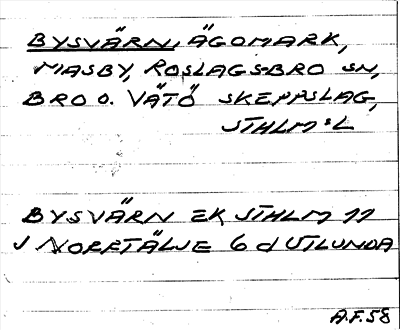 BYSVÄRN, ÄGOMARK,
MASBY, ROSLAGS-BRO SN,
BRO O. VÄTÖ SKEPPSLAG,
STHLM:L
BYSVÄRN EK STHLM 11
J NORRTÄLJE 6 d UTLUNDA
A.F.58